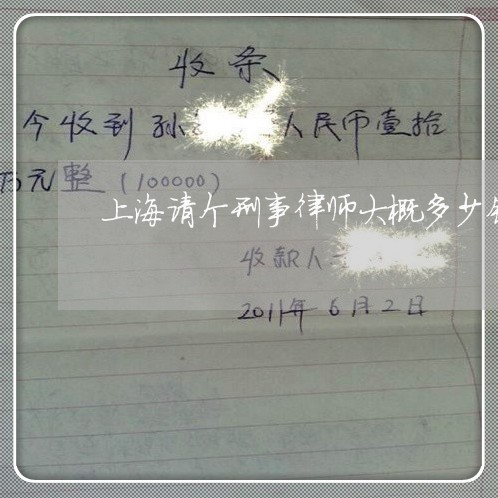 收条
今收到孙 人民币壹拾
万元整(100000)
上海请个刑事律师大概多少
收款人
2011年6月2日